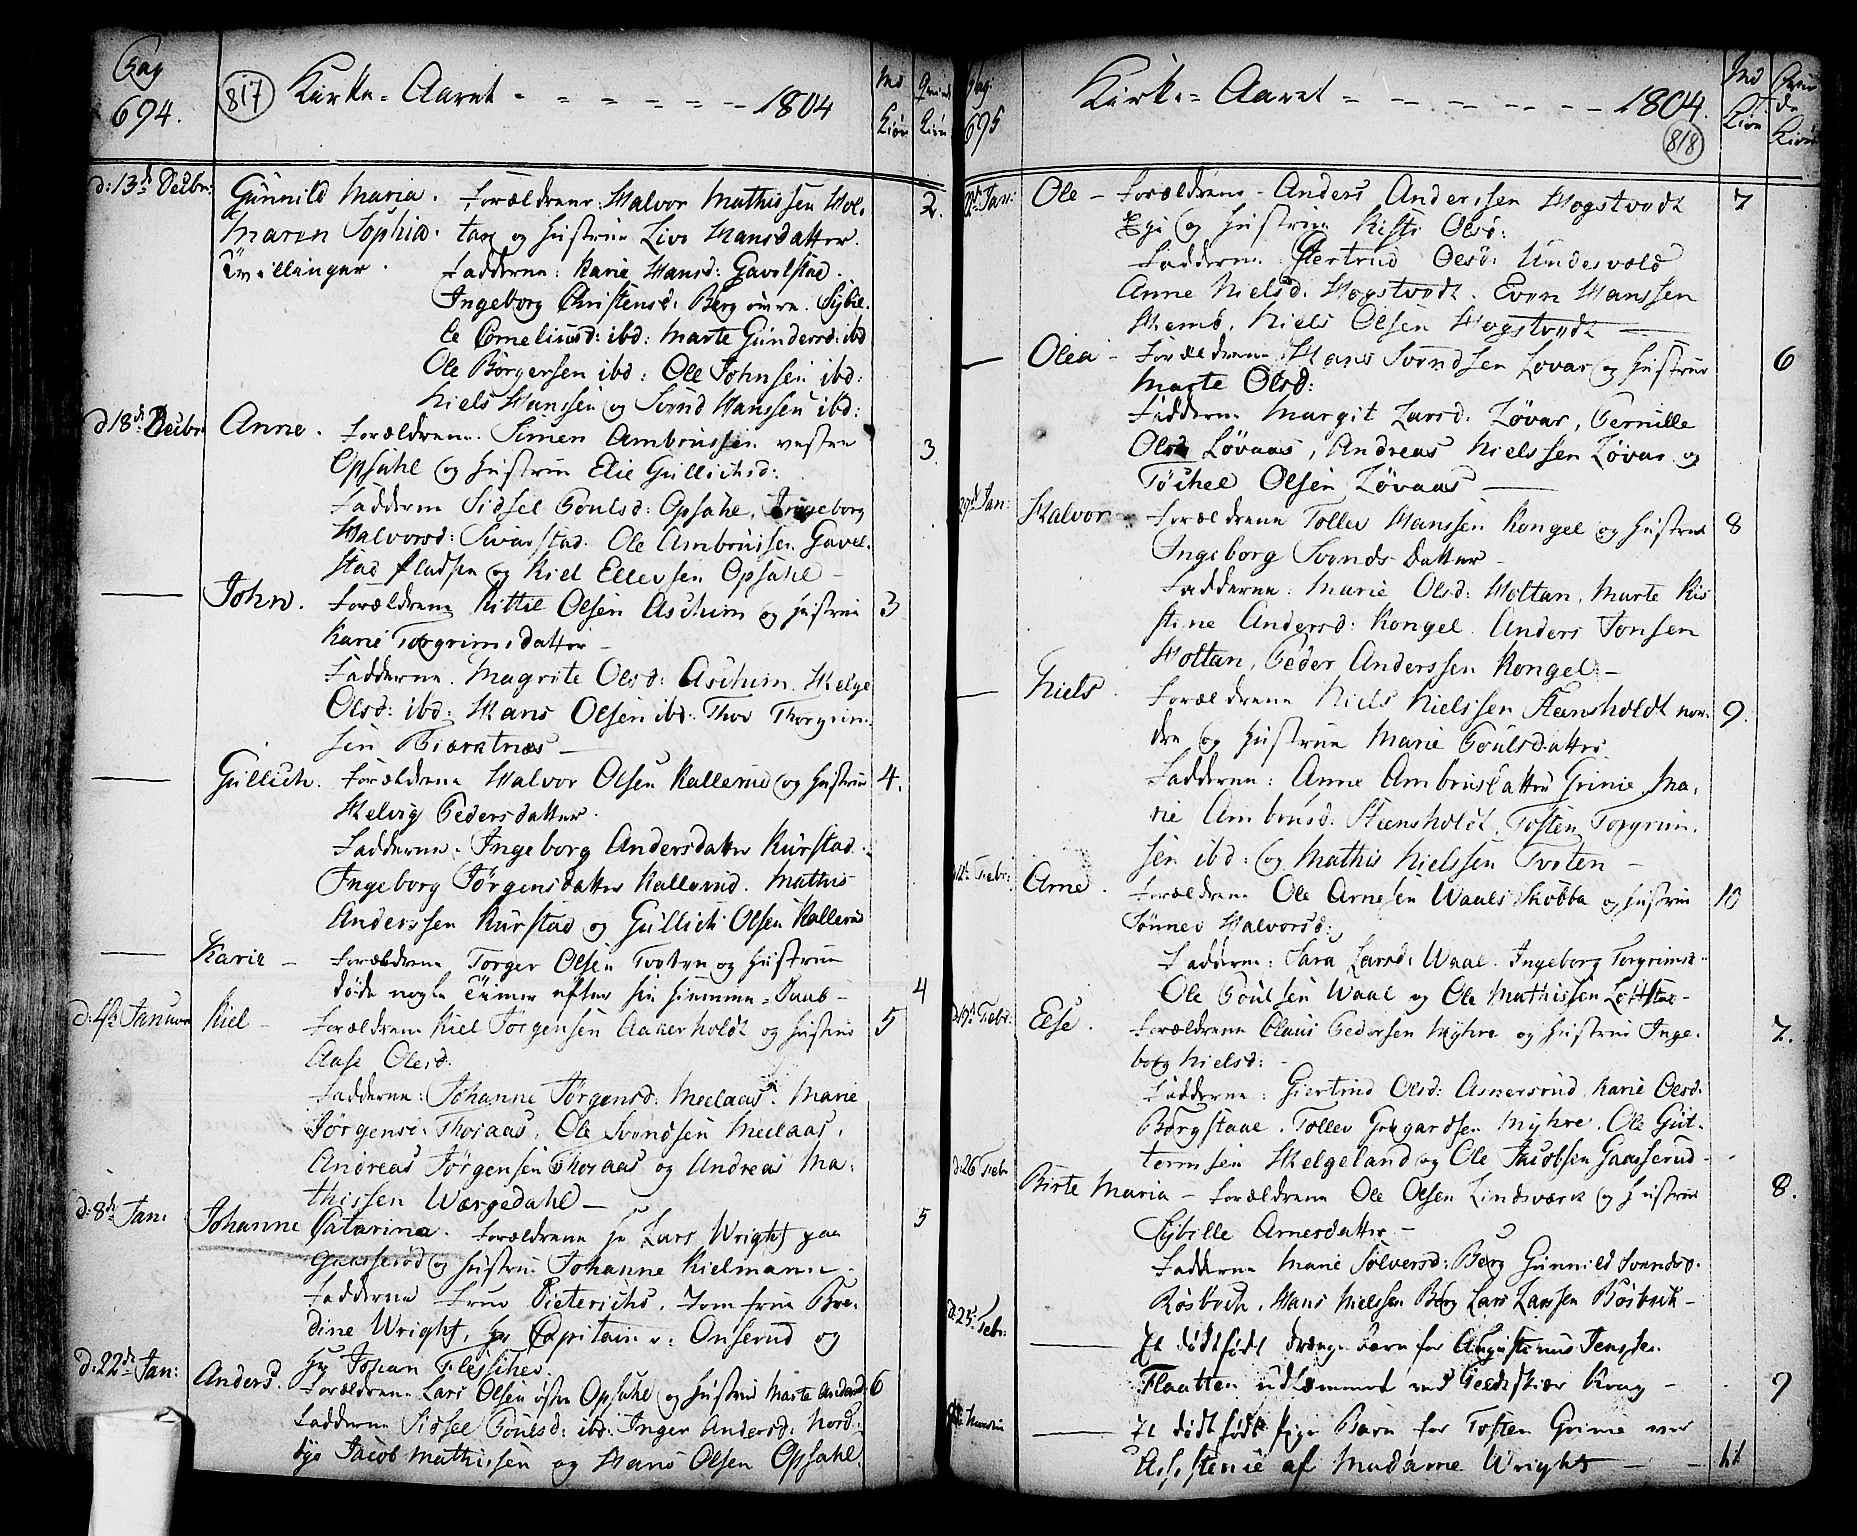 Pag
694.
817
Kirke-Aaret - - - - - - - 1804
d: 13de Decbr:
Gunnild Maria. Forældrene: Halvor Mathissen Hol-
Maren Sophia. tan og Hustrue Live Hansdatter.
Tvillinger. Fadderne: Karie Hansd: Gavelstad.
2.
Ingeborg Christensd: Berg Sybil-
le Corneliusd: ibd: Marte Gundersd: ibd
Ole Børgersen ibd: Ole Johnsen ibd:
Niels Hanssen og Svend Hanssen ibd:
d 18de Decbr
Anne. Forældrene. Simen Ambrussen vestre
3.
Opsahl og Hustrue Elie Gullichsd:
Fadderne Sidsel Poulsd: Opsahl, Ingeborg
Halvorsd: Sivarstad. Ole Ambrussen Gavel-
stad Pladsen og Kiel Ellevsen Opsahl -
John. Forældrene Kittil Olsen Aschim og Hustrue 3
Karie Torgrimsdatter -
Fadderne. Magrete Olsd: Aschim. Helge
Olsd: ibd: Hans Olsen ibd: Thor Thorgrim-
sen Biærtnæs -
Gullich. Forældrene Halvor Olsen Kallerud og Hustrue 4.
Helvig Pedersdatter.
Fadderne. Ingeborg Andersdatter Rurstad.
Ingeborg Jørgensdatter Kallerud. Mathis
Anderssen Rurstad og Gullich Olsen Kallerud
Karie - Forældrene Torger Olsen Tveten og Hustrue
døde nogle Timer efter sin Hiemme-Daab - 4
Kiel - Forældrene Kiel Jørgensen Aakerholdt og Hustrue 5
Aase Olesd.
Fadderne: Johanne Jørgensd: Meelaas. Marie
Jørgensd: Thoraas. Ole Svendsen Meelaas.
Andreas Jørgensen Thoraas og Andreas Ma-
thissen Wærgedahl -
d: 8de Jan:
Johanne Catarina. Forældrene Hr Lars Wright paa 5
Gaaserud og Hustrue Johanne Kielmann.
Fadderne Frue Dieterichs, Jomfrue Bre-
dine Wright, Hr Capitain v: Onserud og
Hr Johan Flescher
d: 22de Jan:
Anders. Forældrene Lars Olsen østre Opsahl og Hustrue Marte Andersd 6
Fadderne Sidsel Poulsd: ibd: Inger Andersd: Nord-
bye Jacob Mathissen og Hans Olsen Opsahl.
Pag:
695
Kirke-Aaret - - - - - - - 1804.
818
22de Jan:
Ole - Forældrene - Anders Anderssen Hogstvedt 7
Eje og Hustrue Kisti Olsd:
Fadderne. Giertrud Olsd: Undesvold
Anne Nielsd: Hogstvedt. Even Hanssen
Niels Olsen Hogstvedt -
Olea - Forældrene Hans Svendsen Løvar og Hustrue 6
Marte Olsd:
Fadderne Margit Larsd: Løvar, Pernille
Olsd Løvaas, Andreas Nielssen Løvar og
Olsen Løvaas -
29de Jan:
Halvor. Forældrene Tollev Hanssen Kongel og Hustrue 8
Ingeborg Svends Datter -
Fadderne: Marie Olsd: Holtan. Marte Kis
stine Andersd: Kongel. Anders Jonsen
Holtan, Peder Anderssen Kongel -
Niels. Forældrene Niels Nielssen Steensholdt nor- 9.
dre og Hustrue Marie Poulsdatter
Fadderne: Anne Ambrusdatter Grinie. Ma-
rie Ambrusd: Steensholdt. Tosten Torgrim-
sen ibd: og Mathis Nielssen Tveten -
Arne. Forældrene Ole Arnesen Waals Skobba og Hustrue 10
Sønnev Halvorsd:
Fadderne: Sara Larsd: Waal. Ingeborg Torgrimsd
Ole Poulsen Waal og Ole Mathissen
19de Febr:
Else. Forældrene Claus Pedersen Myhre og Hustrue Inge- 7.
borg Nielsd: -
Fadderne: Giertrud Olsd: Asmersrud, Karie Olsd:
Borgstaae. Tollev Gregardsen Myhre. Ole Gut-
tormsen Helgeland og Ole Jacobsen Gaasserud
d: 26 Febr
Birte Maria - Forældrene Ole Olsen Lindsværk og Hustrue 8.
Sybille Arnesdatter -
Fadderne Marie Sølversd: Berg Gunnild Svendsd.
Røsbech. Hans Nielssen Berg Lars Larssen Røsbech -
d: 25 Febr:
Et dødfødt Drænge Barn for Augustinus Jens
Flaatten udkommet ved Krag - 9
Et dødfødt Pige Barn for Tosten Grinie ved
Assistence af Madame Wright - 11